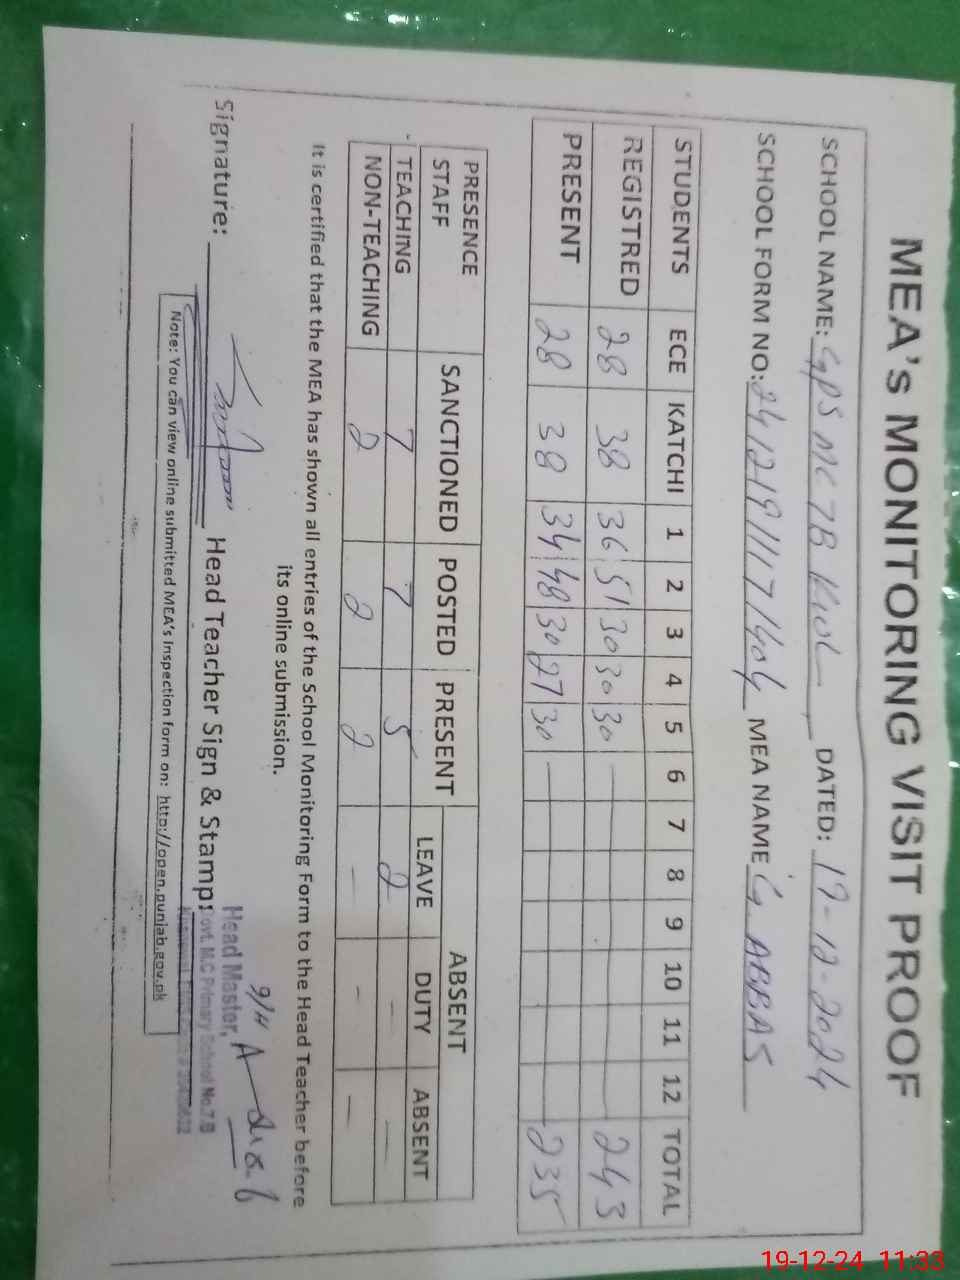 MEA's MONITORING VISIT PROOF
SCHOOL NAME: GPS MC 7B DATED: 19-12-2024
SCHOOL FORM NO: MEA NAME G. ABBAS
STUDENTS ECE KATCHI 1 2 3 4 5 6 7 8 9 10 11 12 TOTAL
REGISTRED 28 38 36 51 30 30 30 — 243
PRESENT 28 38 34 48 30 27 30 — 235
PRESENCE STAFF SANCTIONED POSTED PRESENT ABSENT
LEAVE DUTY ABSENT
TEACHING 7 7 5 2 — —
NON-TEACHING 2 2 2 — — —
It is certified that the MEA has shown all entries of the School Monitoring Form to the Head Teacher before
its online submission.
Signature: Head Teacher Sign & Stamp:
Head Master,
Govt. M.C Primary School No.7.B
Note: You can view online submitted MEA's Inspection form on: http://open.punjab.gov.pk
19-12-24 11:33